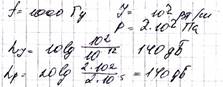 f = 1000 Гц J = 10² Вт/м²
P = 2·10² Па
Lу = 10 lg 10² / 10⁻¹² = 140 дБ
Lр = 20 lg 2·10² / 2·10⁻⁵ = 140 дБ